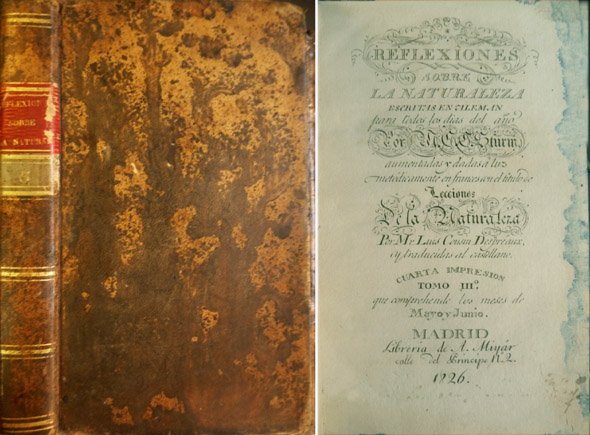 FLEXION
SOBRE
A NATUR
3
REFLEXIONES
SOBRE
LA NATURALEZA
ESCRITAS EN ALEMAN
para todos los dias del año
Por M. C. C. Sturm
aumentadas y dadas á luz
metódicamente en frances con el título de
Lecciones
De la Naturaleza
Por Mr. Luis Cousin Despreaux,
y traducidas al castellano.
CUARTA IMPRESION
TOMO IIIº.
que comprehende los meses de
Mayo y Junio.
MADRID
Librería de A. Miyár
calle del Principe N. 2.
1826.